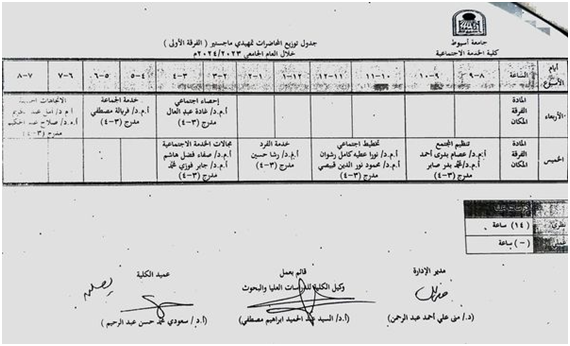 جامعة أسيوط
كلية الخدمة الاجتماعية
جدول توزيع المحاضرات تمهيدي ماجستير ( الفرقة الأولى )
خلال العام الجامعي ٢٠٢٤/٢٠٢٣م
أيام الأسبوع الساعة ٨-٩ ٩-١٠ ١٠-١١ ١١-١٢ ١٢-١ ١-٢ ٢-٣ ٣-٤ ٤-٥ ٥-٦ ٦-٧ ٧-٨
الأربعاء
المادة
الفرقة
المكان
إحصاء اجتماعي
أ.م.د/ غادة عبد العال
مدرج (٣-٤)
خدمة الجماعة
أ.م.د/ فريالة مصطفى
مدرج (٣-٤)
الاتجاهات
أ.م.د/ أمل
أ.د/ صلاح عبد الحكيم
مدرج (٣-٤)
الخميس
المادة
الفرقة
المكان
تنظيم المجتمع
أ.م.د/ عصام بدرى أحمد
أ.م.د/ محمد بدر صابر
مدرج (٣-٤)
تخطيط اجتماعي
أ.م.د/ نورا عطيه كامل رشوان
أ.م.د/ محمود نور الدين قبيصي
مدرج (٣-٤)
خدمة الفرد
أ.م.د/ رشا حسين
مدرج (٣-٤)
مجالات الخدمة الاجتماعية
أ.م.د/ صفاء فضل هاشم
أ.م.د/ جابر فوزي محمد
مدرج (٣-٤)
نظرى (١٤) ساعة
(-) ساعة
مدير الإدارة
(د./ منى علي أحمد عبد الرحمن)
قائم بعمل
وكيل الكلية للدراسات العليا والبحوث
(أ.د/ السيد عبد الحميد ابراهيم مصطفي)
عميد الكلية
(أ.د/ سعودي محمد حسن عبد الرحيم)